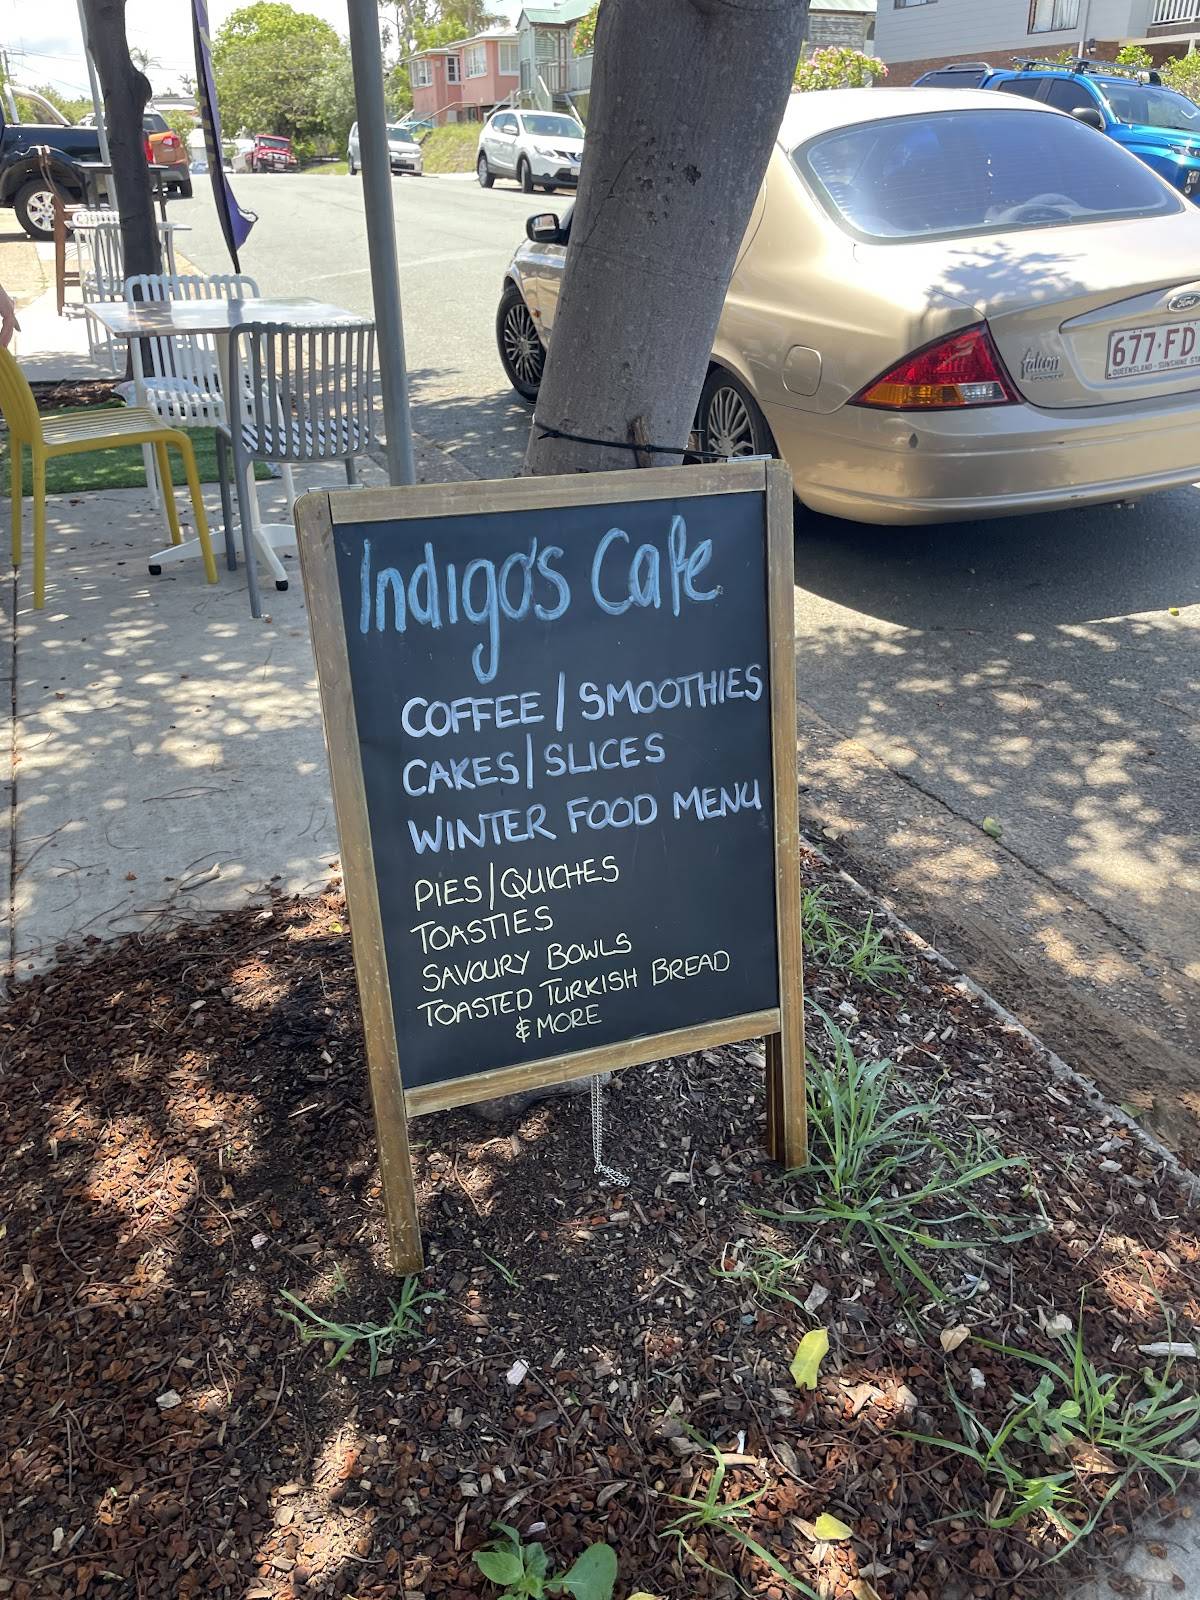 Indigo's Cafe
COFFEE / SMOOTHIES
CAKES / SLICES
WINTER FOOD MENU
PIES / QUICHES
TOASTIES
SAVOURY BOWLS
TOASTED TURKISH BREAD
& MORE
Ford
falcon
677·FD
QUEENSLAND - SUNSHINE ST